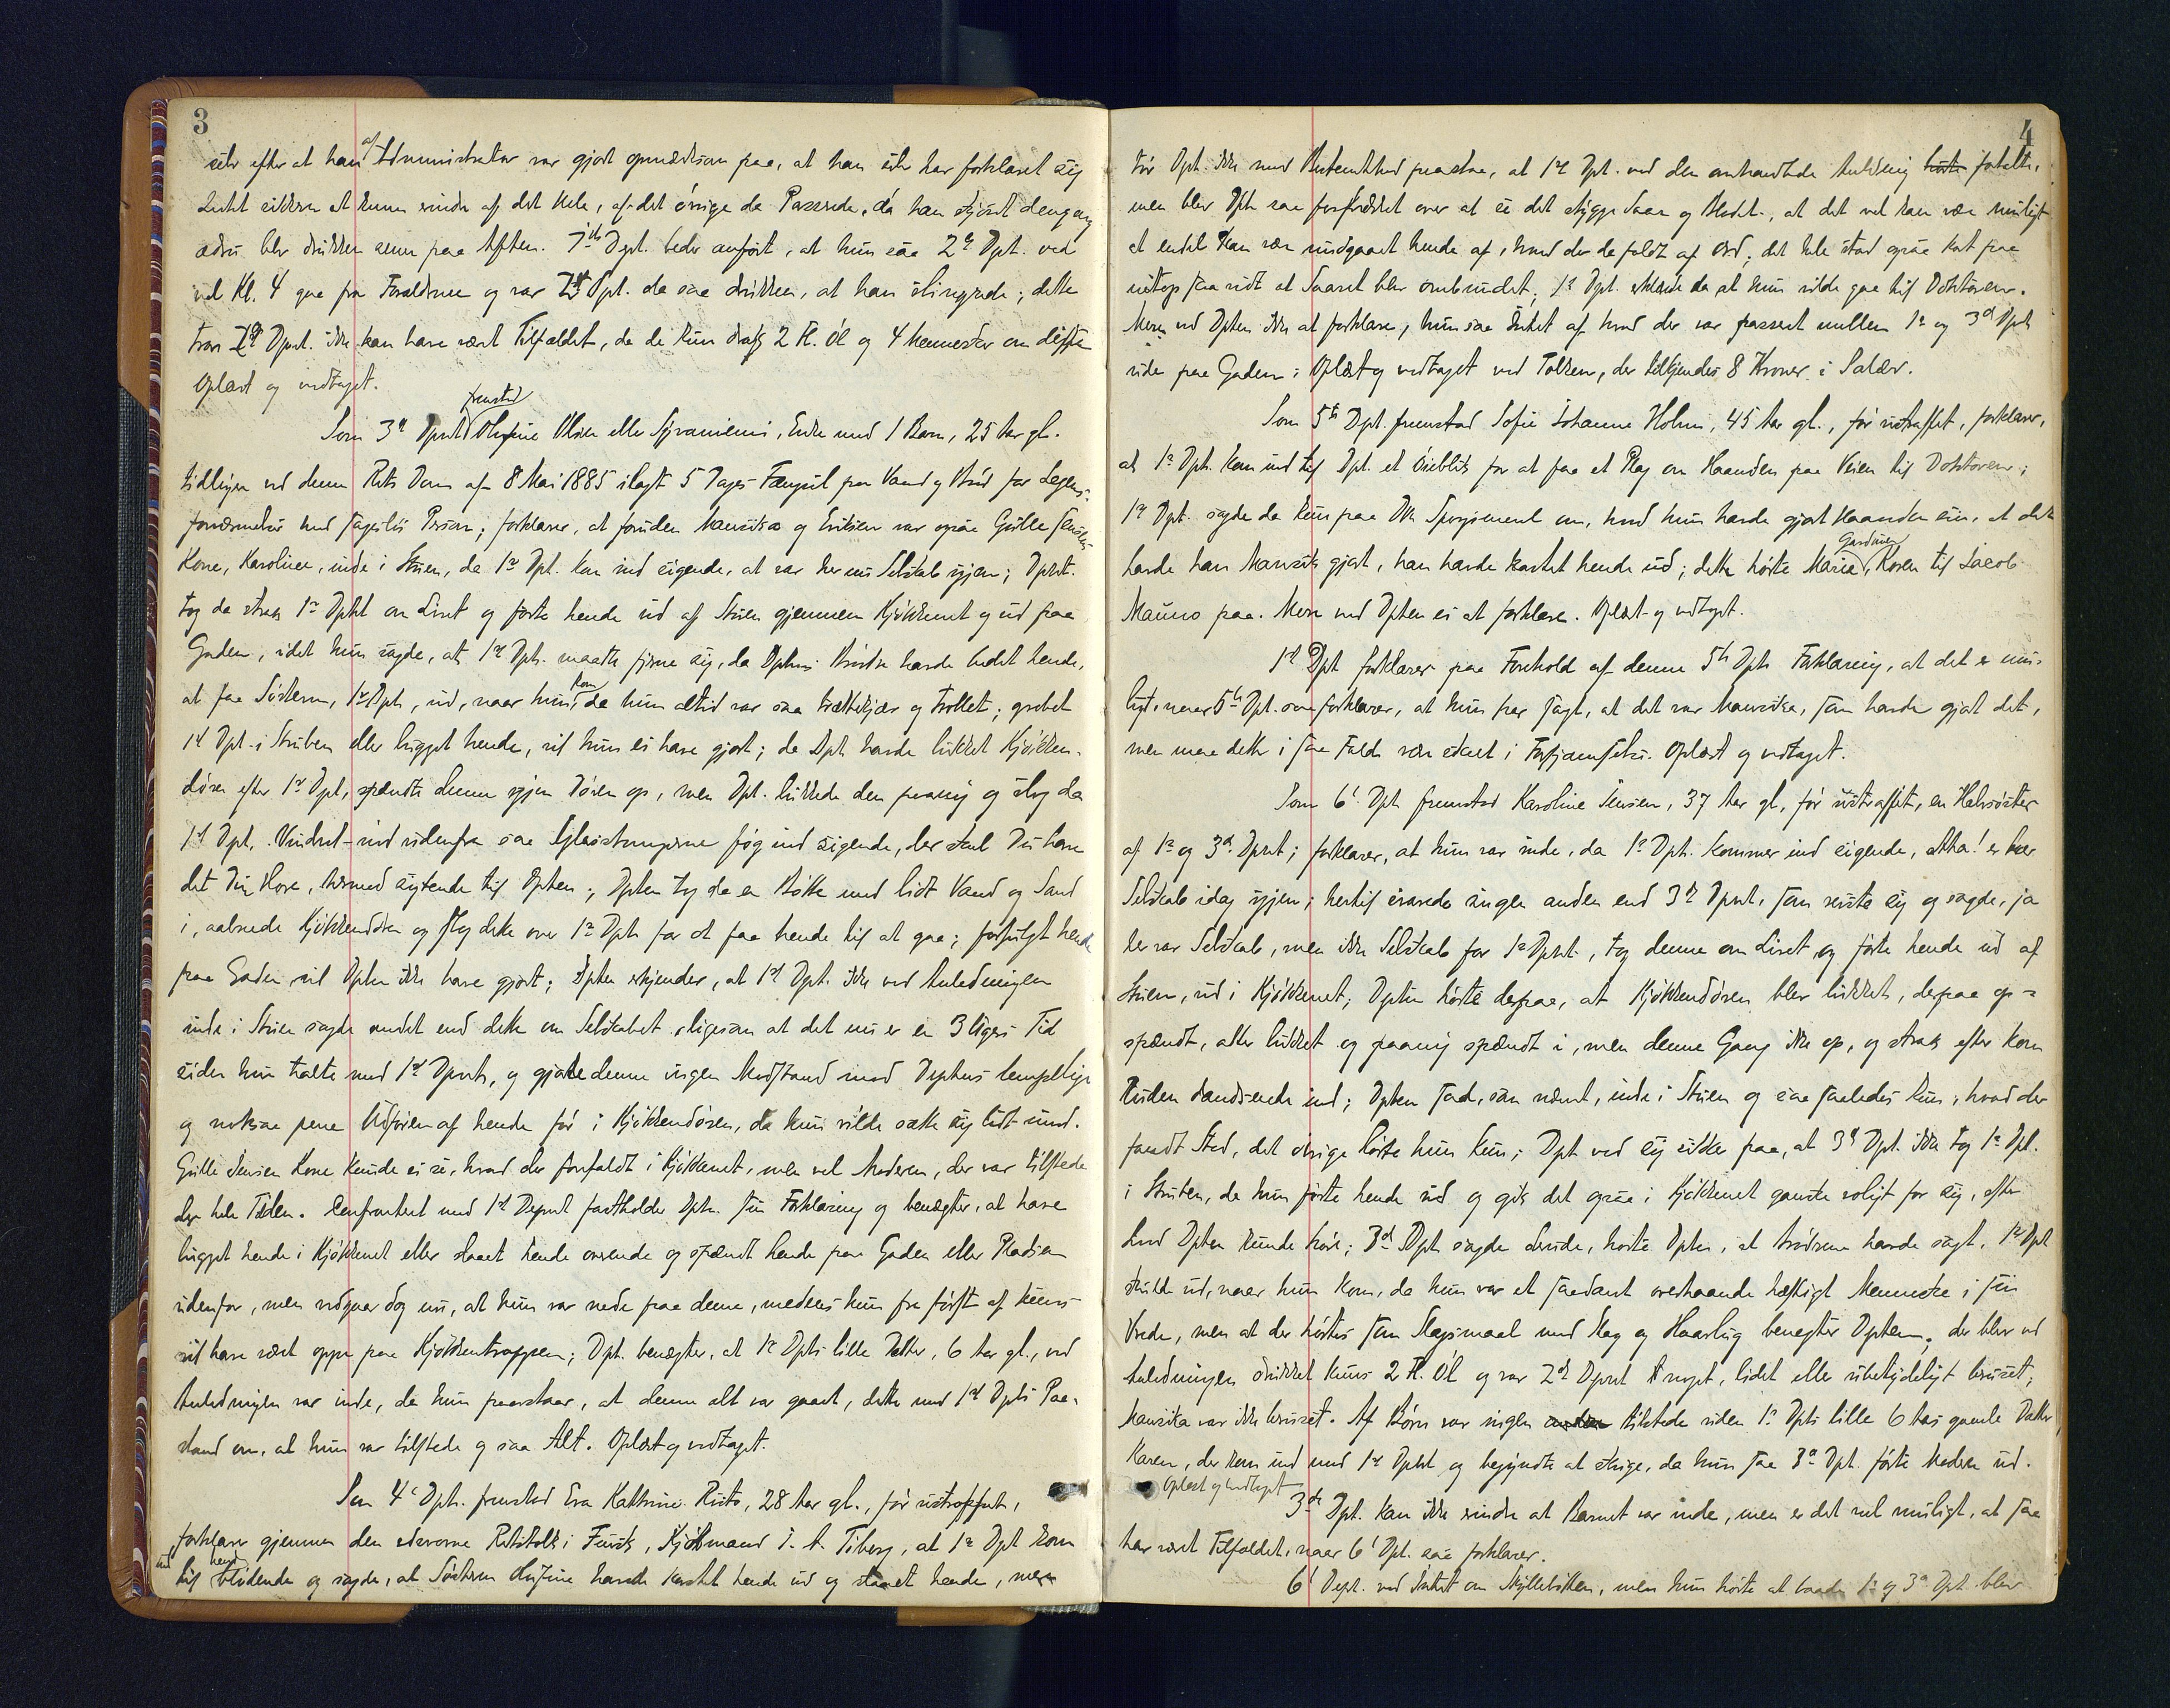 3
selv efter at han af Administrator var gjort opmærksom paa, at han selv har forklaret sig
Intet sikkert at kunne erindre af det Hele, af det øvrige da Passerede, da han skjønt dengang
ædru blev drukken senere paa Aften. 1ste Dept. beder anført, at hun saa 2d Dpt. ved
ved Kl. 4 gaa fra Forældrene og var 2d Dpt. da saa drukken, at han slingrede; dette
tror 2d Dpnt. ikke kan have været Tilfældet, da de kun drak 2 Fl. Øl og 4 Mennesker om disse
Oplæst og vedtaget.
Som 3d Dpnt fremstod Olufine Olsen eller Syraniemi, Enke med 1 Barn, 25 Aar gl.
tidligere ved denne Rets Dom af 8 Mai 1885 ilagt 5 Dages Fængsel paa Vand og Brød for Legems-
fornærmelse mod sagesløs Person; forklarer, at foruden Mauritsa og Eriksen var ogsaa Grille Jensens
Kone, Karoline, inde i Stuen, da 1ste Dpt. kom ind sigende, at var her nu Selskab igjen; Dpnt.
tog da strax 1ste Dpnt om Livet og førte hende ud af Stuen gjennem Kjøkkenet og ud paa
Gaden, idet hun sagde, at 1ste Dpt. maatte fjerne sig, da Dptens Brødre havde bedet hende,
at faa Søsteren, 1ste Dpt, ud, naar hun kom, da hun altid var saa trættekjær og trollet; grebet
1ste Dpt. i Struben eller hugget hende, vil hun ei have gjort; da Dpt. havde lukket Kjøkken-
døren efter 1ste Dpt, spændte denne igjen Døren op, men Dpt. lukkede den paany og slog da
1ste Dpt. Vinduet ind udenfra saa Glasstumperne føg ind sigende, der skal Du have
det Din Hore, hermed sigtende til Dpten; Dpten tog da en Bøtte med lidt Vand og Sand
i, aabnede Kjøkkendøren og slog dette over 1ste Dpt for at faa hende til at gaa; forfulgt hende
paa Gaden vil Dpten ikke have gjort; Dpten erkjender, at 1ste Dpt. ikke ved Anledningen
inde i Stuen sagde andet end dette om Selskabet ligesom at det nu er en 3 Ugers Tid
siden hun talte med 1ste Dpnt, og gjorde denne ingen Modstand mod Deptens lempelige
og noksaa pene Udføren af hende før i Kjøkkendøren, da hun vilde sætte sig lidt imod.
Grille Jensens Kone kunde ei se, hvad der forefaldt i Kjøkkenet, men vel Moderen, der var tilstede
der hele Tiden. Confronteret med 1ste Depnt fastholder Dptn. sin Forklaring og benægter, at have
hugget hende i Kjøkkenet eller slaaet hende overende og spændt hende paa Gaden eller Pladsen
udenfor, men vedgaar dog nu, at hun var nede paa denne, medens hun fra først af kuns
vil have været oppe paa Kjøkkentrappen; Dpt. benægter, at 1ste Dpts lille Datter, 6 Aar gl., ved
Anledningen var inde, da hun paastaar, at denne alt var gaaet, dette mod 1ste Dpts Paa-
stand om, at hun var tilstede og saa Alt. Oplæst og vedtaget.
Som 4e Dptn. fremstod Eva Kathrine Risto, 28 Aar gl., før ustraffet,
forklarer gjennem den edsvorne Retstolk i Finsk, Kjøbmand I. A. Tiberg, at 1ste Dpt kom
ind til hende blødende og sagde, at Søsteren Olufine havde kastet hende ud og slaaet hende, mere
4
tør Dpt. ikke med Bestemthed paastaa, at 1ste Dpt. ved den omhandlede Anledning fortalte,
men blev Dptn saa forskrækket over at se det stygge Saar og Blodet, at det vel kan være muligt
at endel kan være undgaaet hende af, hvad der da faldt af Ord; det hele stod ogsaa kort paa
netop saa vidt at Saaret blev ombundet; 1ste Dpt. erklærede da at hun vilde gaa til Doktoren.
Mere ved Dpten ikke at forklare, hun saa Intet af hvad der var passeret mellem 1ste og 3d Dpt
ude paa Gaden; Oplæst og vedtaget ved Tolken, der tilkjendes 8 Kroner i Salær.
Som 5te Dpt. fremstod Sofie Johanne Holm, 45 Aar gl., før ustraffet, forklarer,
at 1ste Dpt. kom ind til Dpt. et Øieblik for at faa et Plag om Haanden paa Veien til Doktoren;
1ste Dpt. sagde da kun paa Dptn Spørgsmaal om, hvad hun havde gjort Haanden sin, at det
havde han Mauritz gjort, han havde kastet hende ud; dette hørte Marie Gardiner, Konen til Jacob
Mauno paa. Mere ved Dpten ei at forklare. Oplæst og vedtaget.
1ste Dpt forklarer paa Forehold af denne 5te Dpts Forklaring, at det er mu-
ligt, naar 5te Dpt. saa forklarer, at hun har sagt, at det var Mauritsa, som havde gjort det,
men maa dette i saa Fald være skeet i Forfjamselse. Oplæst og vedtaget.
Som 6te Dptn fremstod Karoline Jensen, 37 Aar gl, før ustraffet, en Halvsøster
af 1ste og 3d Dpnt; forklarer, at hun var inde, da 1ste Dpt. kommer ind sigende, atha! er her
Selskab idag igjen; hertil svarede ingen anden end 3d Dpnt, som reiste sig og sagde, ja
her var Selskab, men ikke Selskab for 1ste Dpnt., tog denne om Livet og førte hende ud af
Stuen, ud i Kjøkkenet; Dpten hørte derpaa, at Kjøkkendøren blev lukket, derpaa op-
spændt, atter lukket og paany spændt i, men denne Gang ikke op, og strax efter kom
Ruden dandsende ind; Dpten sad, som nævnt, inde i Stuen og saa saaledes kun, hvad der
fandt Sted, det øvrige hørte hun kun; Dpt ved sig sikker paa, at 3d Dpt. ikke tog 1ste Dpt.
i Struben, da hun førte hende ud og gik det ogsaa i Kjøkkenet ganske roligt for sig, efter
hvad Dpten kunde høre; 3d Dpt sagde derude, hørte Dpten, at Brødrene havde sagt, 1ste Dpt
skulde ud, naar hun kom, da hun var et saadant overhaande hæftigt Menneske i sin
Vrede, men at der hørtes som Slagsmaal med Slag og Haarlug benegter Dpten; der blev ved
Anledningen drukket kuns 2 Fl. Øl og var 2d Dpnt noget, lidet eller ubetydeligt beruset;
Mauritsa var ikke beruset. Af Børn var ingen tilstede uden 1ste Dpts lille 6 Aars gamle Datter
Karen, der kom ind med 1ste Dpnt og begyndte at skrige, da hun saa 3d Dpt. førte Moderen ud.
Oplæst og vedtaget
3die Dpt. kan ikke erindre at Barnet var inde, men er det vel muligt, at saa
har været Tilfældet, naar 6te Dpt. saa forklarer.
6te Dept. ved Intet om Skyllebøtten, men hun hørte at baade 1ste og 3d Dpt. blev